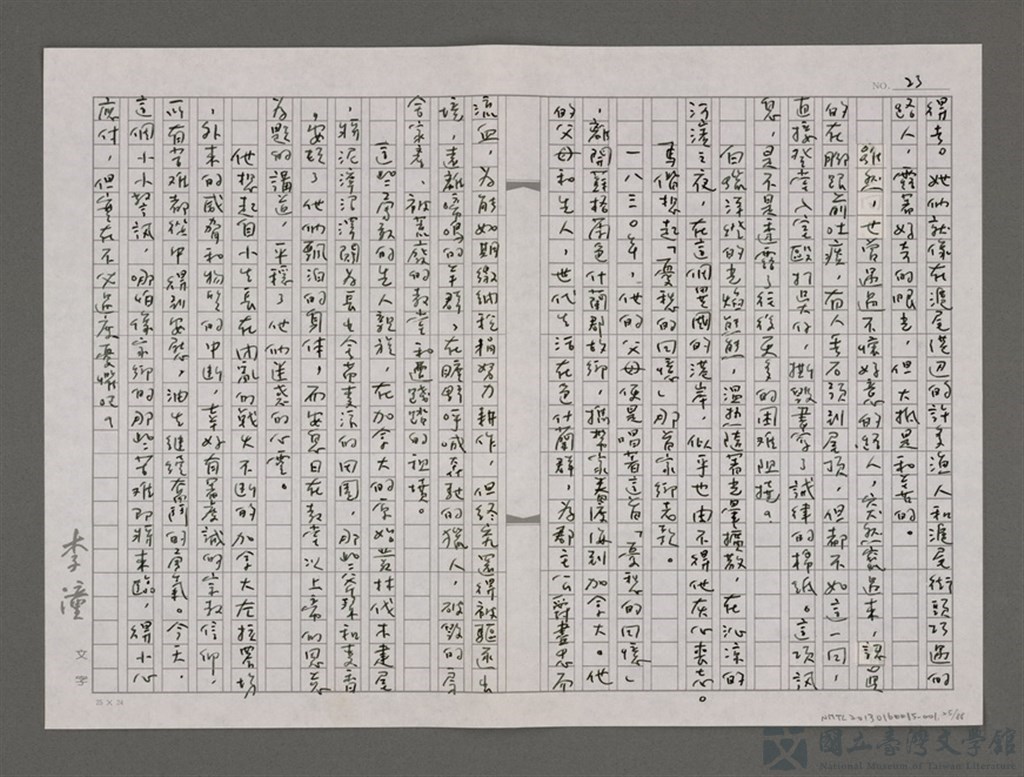 NO. 23
得去。她們就像在滬尾港邊的許多漁人和滬尾街頭巧遇的
路人，露著好奇的眼光，但大抵是和善的。
雖然，也曾遇過不懷好意的路人，突然靠過來，認真
的在腳跟前吐痰，有人丟石頭到屋頂，但都不如這一回，
直接登堂入室毆打吳仔，撕毀書寫了誡律的棉紙。這項訊
息，是不是透露了往後更多的困難阻撓？
白磁洋燈的光焰熊熊，溫熱隨著光暈擴散，在沁涼的
河漢之夜，在這個異國的港岸，似乎也由不得他灰心喪志。
馬偕想起「憂愁的回憶」那首家鄉老歌。
一八三０年，他的父母便是唱著這首「憂愁的回憶」
，離開蘇格蘭色什蘭郡故鄉，攜帶家眷渡海到加拿大。他
的父母和先人，世代生活在色什蘭群，為郡主公爵盡忠而
流血，為能如期繳納稅捐努力耕作，但終究還得被驅逐出
境，遠離啼鳴的羊群，在曠野呼喊奔馳的獵人，破敗的房
舍家書、被荒廢的教堂和遭踐踏的祖墳。
這些勇敢的先人親族，在加拿大的原始叢林伐木建屋
，將泥濘沼澤闢為長出令常麥浪的田園，那些家琴和麥香
，安頓了他們飄泊的身体，而安息日在教堂以上帝的恩惠
為題的講道，平穩了他們迷惑的心靈。
他想起自小生長在內亂的戰火不斷的加拿大左拉罟坊
，外來的威脅和物資的中斷，幸好有著虔誠的宗教信仰，
所有苦難都從中得到安慰，油生繼續奮鬥的勇氣。今天，
這個小小警訊，哪怕像家鄉的那些苦難即將來臨，得小心
應付，但實在不必過度憂懼吧？
李潼
文字
25 X 24
NMTL20130160015-001.25/88
國立臺灣文學館
National Museum of Taiwan Literature